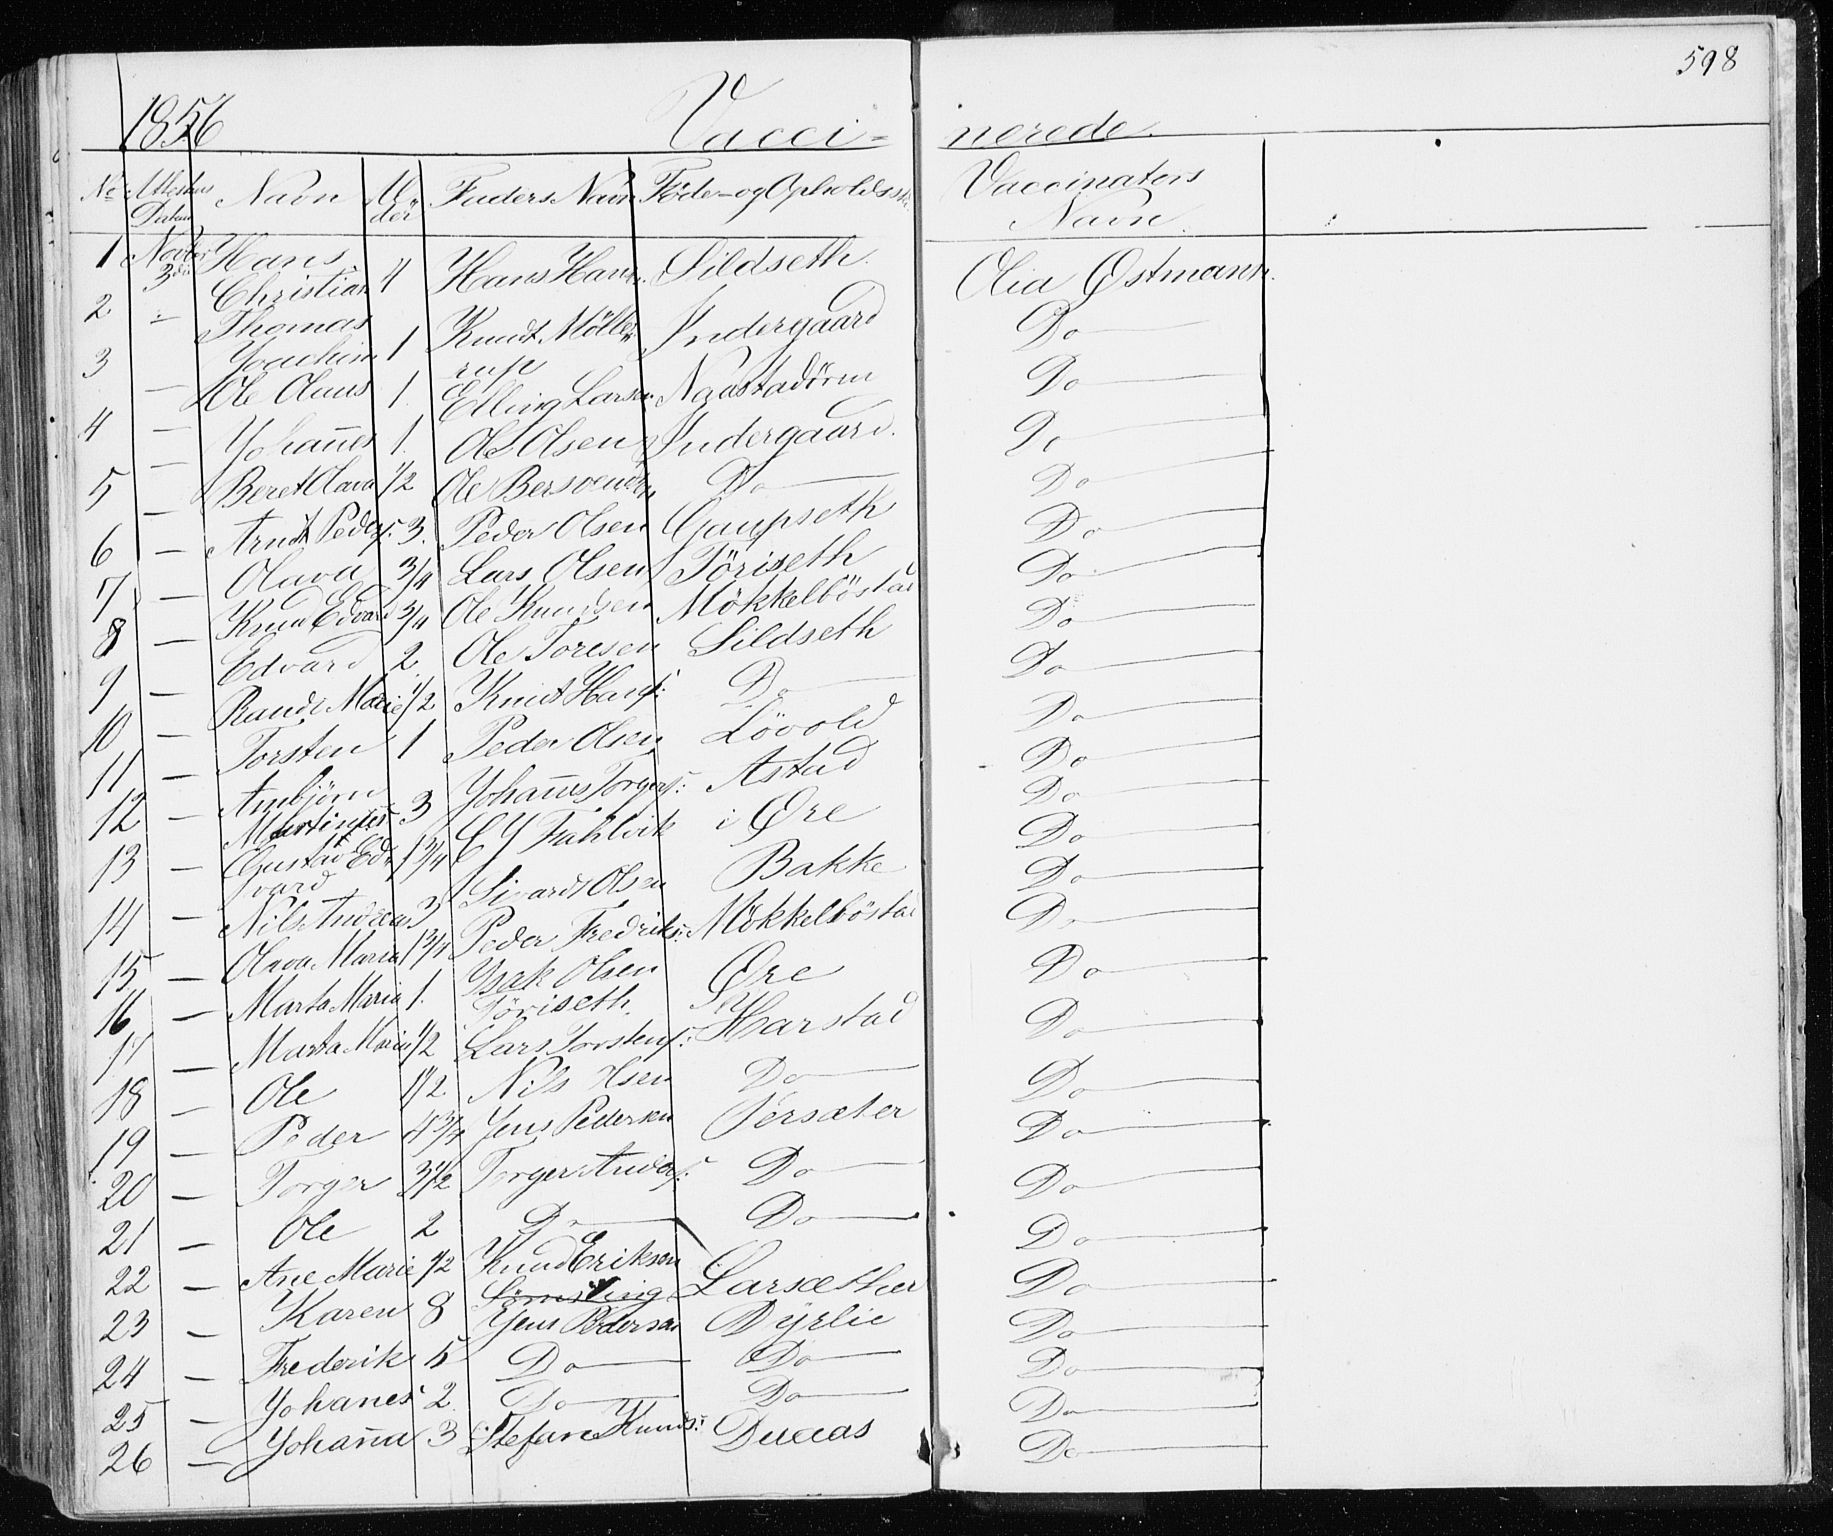 598
1856 Vacci= nerede.
No Attestens Datum Navn Alder Faders Navn Føde- og Opholdssted Vaccinators Navn.
1 Novber 3die Hans Christian 4 Hans Hans. Sildseth. Olia Østmann.
2 - Thomas Joachim 1 Knudt Möllerup Indergaard Do
3 — Ole Olaus 1. Elling Larsen Naastadören Do
4 — Johañes 1. Ole Olsen Indergaard. Do
5 — Beret Olava 1/2 Ole Bersvends. Do Do
6 — Arndt Peders. 3. Peder Olsen Gaupseth Do
7 — Olava 3/4 Lars Olsen Töriseth Do
8 — Knud Edvard 3/4 Ole Knudsen Mökkelböstad Do
9 — Edvard 2 Ole Toresen Sildseth Do
10 — Randi Marie 1/2 Knut Hans: Do Do
11 — Torsten 1 Peder Olsen Lövold Do
12 — Arnbjörn Martinus 3 Johañes Torgers: Astad Do
13 — Gustav Edvard 1 3/4 C J Fahlvik i Øre Do
14 — Nils Andreas 3 Sivardt Olsen Bakke Do
15 — Olava Maria 1 3/4 Peder Fredriks: Mökkelböstad Do
16 — Marta Maria 1. Isak Olsen Töriseth. Øre Do
17 — Marta Maria 1/2 Lars Torstens: Harstad Do
18 — Ole 1 1/2 Nils Olsen Do Do
19 — Peder 4 3/4 Jens Pedersen Versæter Do
20 — Torger 3 1/2 Torger Anders: Do Do
21 — Ole 2 Do Do Do
22 — Ane Marie 1/2 Knud Eriksen Larsæther Do
23 — Karen 8 Jens Pedersen Dyrlie Do
24 — Frederik 5 Do Do Do
25 — Johanes 2. Do Do Do
26 — Johaña 3 Stefan Knuds: Duaas Do